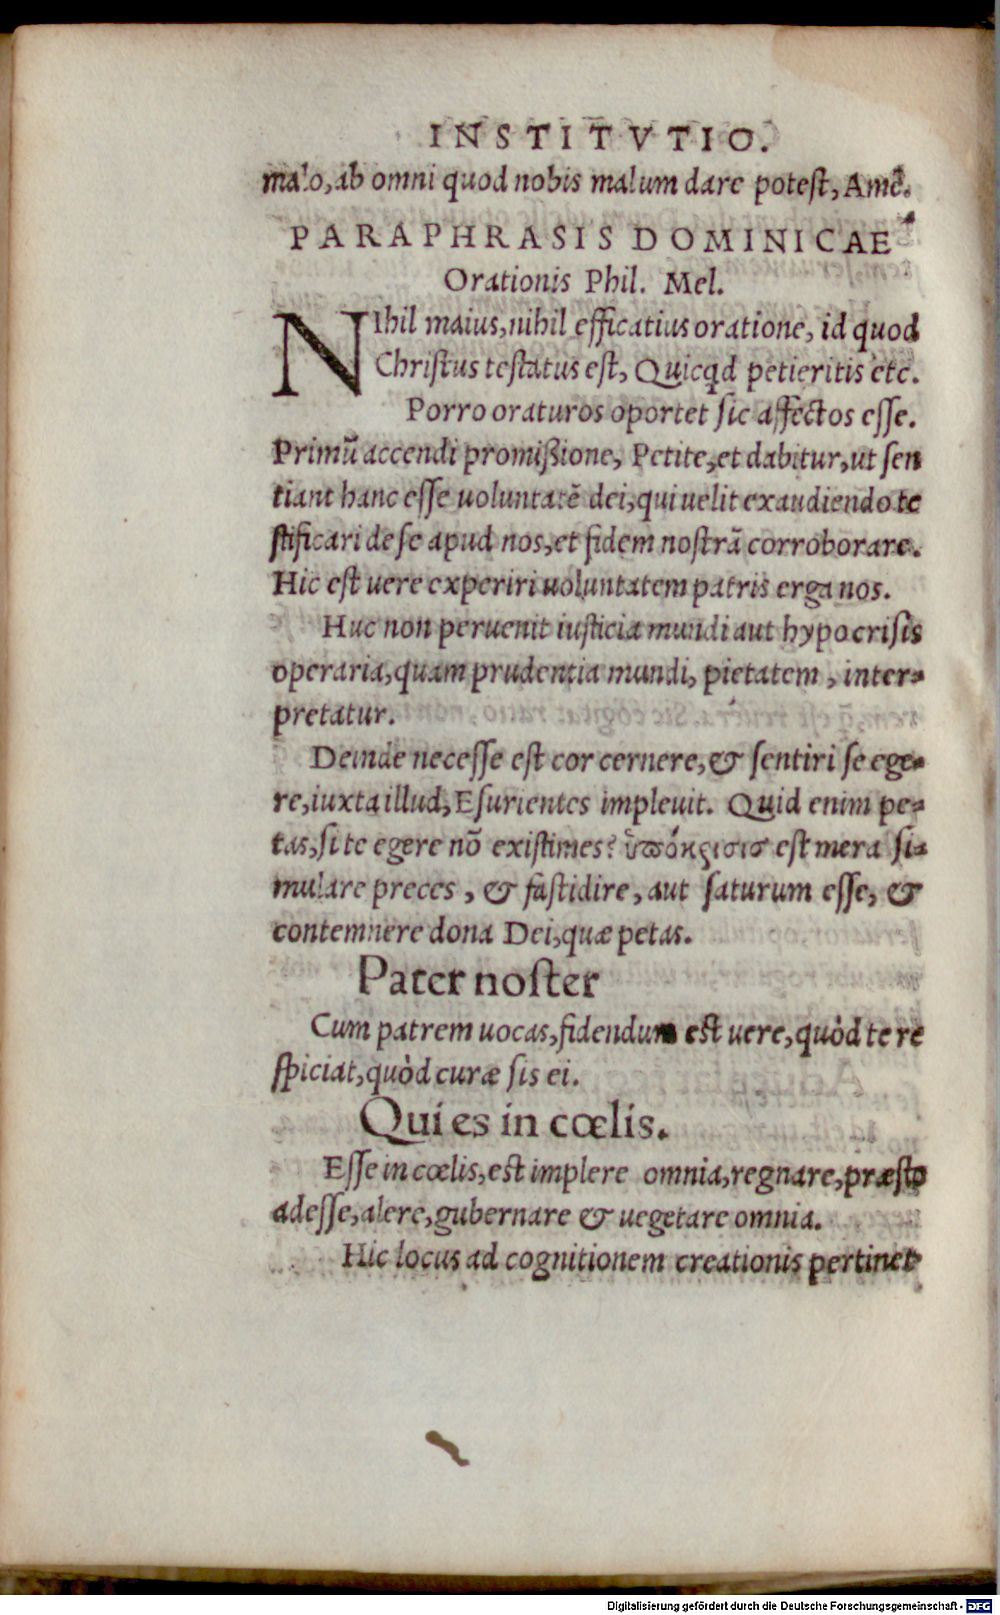 INSTITVTIO.
malo, ab omni quod nobis malum dare potest, Amē.
PARAPHRASIS DOMINICAE
Orationis Phil. Mel.
NIhil maius, nihil efficatius oratione, id quod
Christus testatus est, Quicqd petieritis etc.
Porro oraturos oportet sic affectos esse.
Primū accendi promißione, Petite, et dabitur, ut sen
tiant hanc esse uoluntatē dei, qui uelit exaudiendo te
stificari de se apud nos, et fidem nostrā corroborare.
Hic est uere experiri uoluntatem patris erga nos.
Huc non peruenit iusticia mundi aut hypocrisis
operaria, quam prudentia mundi, pietatem, inter-
pretatur.
Deinde necesse est cor cernere, & sentiri se ege-
re, iuxta illud, Esurientes impleuit. Quid enim pe-
tas, si te egere nō existimes? ὑπόκρισισ est mera si-
mulare preces, & fastidire, aut saturum esse, &
contemnere dona Dei, quæ petas.
Pater noster
Cum patrem uocas, fidendum est uere, quòd te re
spiciat, quòd curæ sis ei.
Qui es in cœlis.
Esse in cœlis, est implere omnia, regnare, præsto
adesse, alere, gubernare & uegetare omnia.
Hic locus ad cognitionem creationis pertinet
Digitalisierung gefördert durch die Deutsche Forschungsgemeinschaft - DFG